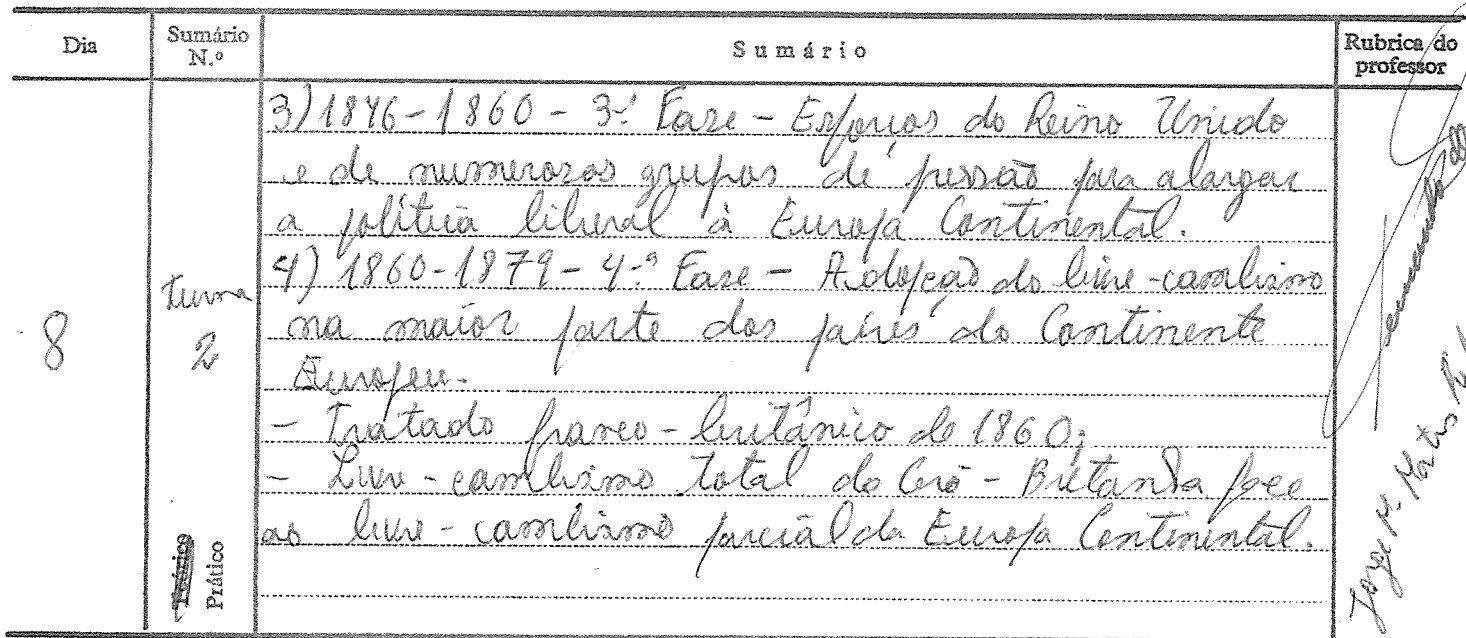 Dia
Sumário N.º
Sumário
Rubrica do professor
3) 1846-1860 - 3.ª Fase - Esforços do Reino Unido
e de numerosos grupos de pressão para alargar
a política liberal à Europa Continental.
4) 1860-1879 - 4.ª Fase - Adopção do livre-cambismo
na maior parte dos países do Continente
Europeu.
- Tratado franco-britânico de 1860;
- Livre-cambismo total da Grã-Bretanha face
ao livre-cambismo parcial da Europa Continental.
8
turma
2
Teórico
Prático
Jorge M. Matos